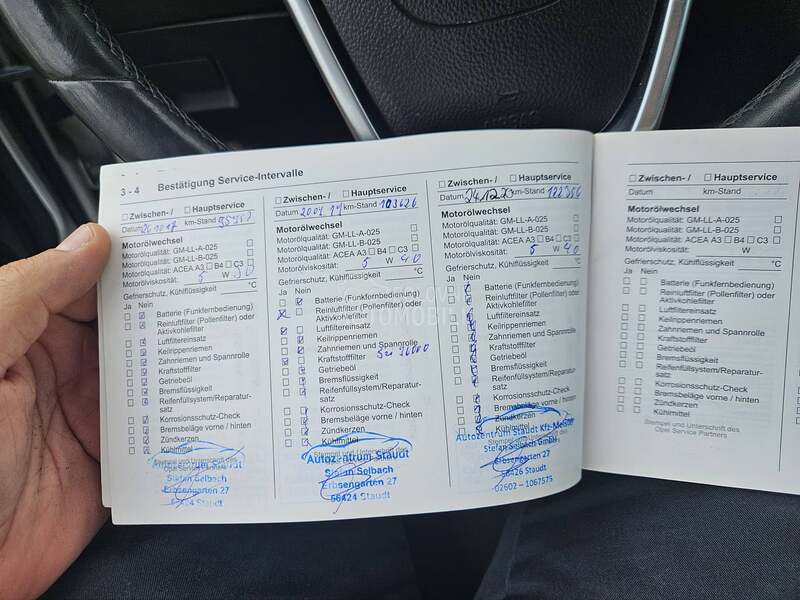 3 - 4 Bestätigung Service-Intervalle
Zwischen- / Hauptservice
Datum km-Stand
Motorölwechsel
Motorölqualität: GM-LL-A-025
Motorölqualität: GM-LL-B-025
Motorölqualität: ACEA A3 B4 C3
Motorölviskosität: 5 W
Gefrierschutz, Kühlflüssigkeit °C
Ja Nein
Batterie (Funkfernbedienung)
Reinluftfilter (Pollenfilter) oder
Aktivkohlefilter
Luftfiltereinsatz
Keilrippenriemen
Zahnriemen und Spannrolle
Kraftstofffilter
Getriebeöl
Bremsflüssigkeit
Reifenfüllsystem/Reparatur-
satz
Korrosionsschutz-Check
Bremsbeläge vorne / hinten
Zündkerzen
Kühlmittel
Stempel und Unterschrift des
Opel Service Partners
Autozentrum Staudt
Stefan Selbach
Erbsengarten 27
56424 Staudt
Zwischen- / Hauptservice
Datum km-Stand 103626
Motorölwechsel
Motorölqualität: GM-LL-A-025
Motorölqualität: GM-LL-B-025
Motorölqualität: ACEA A3 B4 C3
Motorölviskosität: 5 W 40
Gefrierschutz, Kühlflüssigkeit °C
Ja Nein
Batterie (Funkfernbedienung)
Reinluftfilter (Pollenfilter) oder
Aktivkohlefilter
Luftfiltereinsatz
Keilrippenriemen
Zahnriemen und Spannrolle
Kraftstofffilter
Getriebeöl
Bremsflüssigkeit
Reifenfüllsystem/Reparatur-
satz
Korrosionsschutz-Check
Bremsbeläge vorne / hinten
Zündkerzen
Kühlmittel
Stempel und Unterschrift des
Autozentrum Staudt
Stefan Selbach
Erbsengarten 27
56424 Staudt
Zwischen- / Hauptservice
Datum km-Stand
Motorölwechsel
Motorölqualität: GM-LL-A-025
Motorölqualität: GM-LL-B-025
Motorölqualität: ACEA A3 B4 C3
Motorölviskosität: 5 W 40
Gefrierschutz, Kühlflüssigkeit °C
Ja Nein
Batterie (Funkfernbedienung)
Reinluftfilter (Pollenfilter) oder
Aktivkohlefilter
Luftfiltereinsatz
Keilrippenriemen
Zahnriemen und Spannrolle
Kraftstofffilter
Getriebeöl
Bremsflüssigkeit
Reifenfüllsystem/Reparatur-
satz
Korrosionsschutz-Check
Bremsbeläge vorne / hinten
Zündkerzen
Kühlmittel
Autozentrum Staudt Kfz-Meister
Stefan Selbach GmbH
Erbsengarten 27
56426 Staudt
02602 – 1067575
Zwischen- / Hauptservice
Datum km-Stand
Motorölwechsel
Motorölqualität: GM-LL-A-025
Motorölqualität: GM-LL-B-025
Motorölqualität: ACEA A3 B4 C3
Motorölviskosität: W
Gefrierschutz, Kühlflüssigkeit °C
Ja Nein
Batterie (Funkfernbedienung)
Reinluftfilter (Pollenfilter) oder
Aktivkohlefilter
Luftfiltereinsatz
Keilrippenriemen
Zahnriemen und Spannrolle
Kraftstofffilter
Getriebeöl
Bremsflüssigkeit
Reifenfüllsystem/Reparatur-
satz
Korrosionsschutz-Check
Bremsbeläge vorne / hinten
Zündkerzen
Kühlmittel
Stempel und Unterschrift des
Opel Service Partners